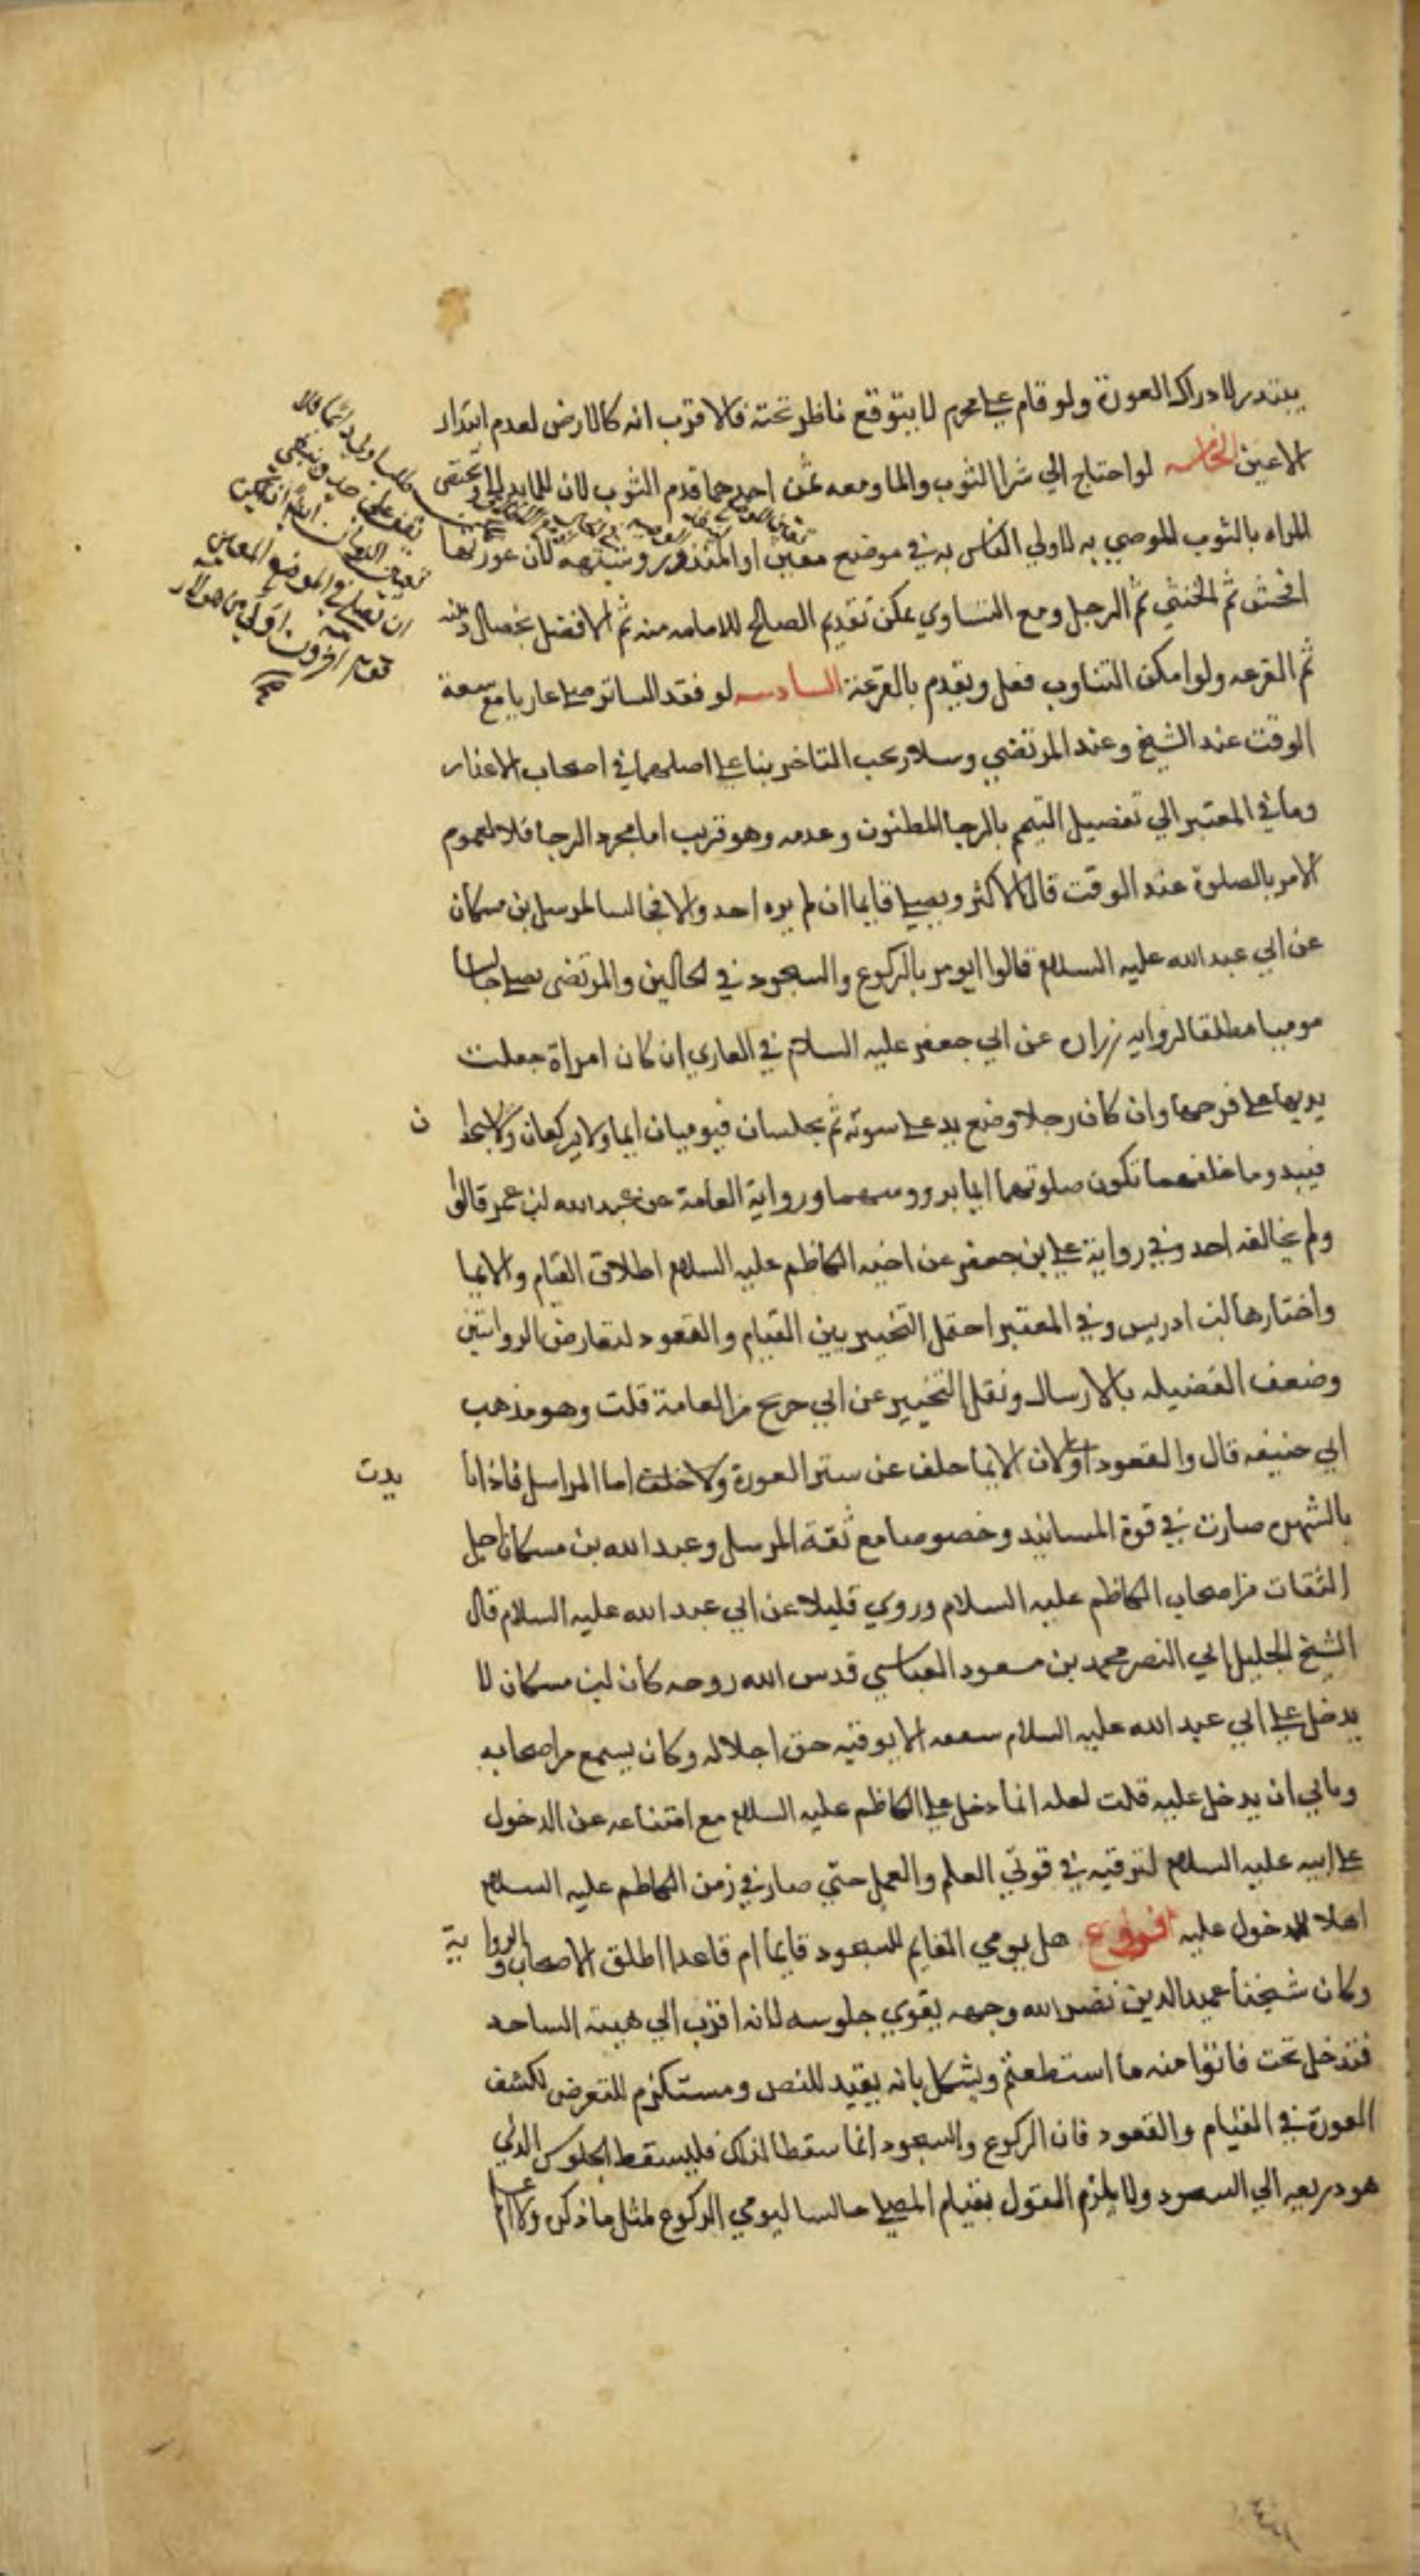 يبتدر لادراك العورة ولو قام على محرم لا يتوقع ناظر تحته فالاقرب انه كالارض لعدم ابتدار
الاعين الخامسه لو احتاج الي شرا الثوب والما ومعه ثمن احدهما قدم الثوب لان للما بدلا
المراه بالثوب الموصي به لاولي الناس به في موضع معين او المنذور وشبهه لان عورتها
افحش ثم الخنثي ثم الرجل ومع التساوي يمكن تقديم الصالح للامامه منه ثم الافضل بخصال
ثم القرعه ولو امكن التناوب فعل ويقدم بالقرعة السادسه لو فقد الساتر صلى عاريا مع سعة
الوقت عند الشيخ وعند المرتضي وسلار يجب التاخر بنا على اصلهما في اصحاب الاعذار
ومال في المعتبر الي تفصيل التيمم بالرجا المظنون وعدمه وهو قريب اما مجرد الرجا فلا لعموم
الامر بالصلوة عند الوقت قال الاكثر ويصلي قايما ان لم يره احد والا فجالسا لمرسل بن مسكان
عن ابي عبد الله عليه السلام قالوا ايومر بالركوع والسجود في الحالين والمرتضى يصلي جالسا
موميا مطلقا لروايه زراره عن ابي جعفر عليه السلام في العاري ان كان امراة جعلت
يديها على فرجها وان كان رجلا وضع يده على سوته ثم يجلسان فيوميان ايما ولا يركعان ولا يسجدا ن
فيبدو ما خلفهما تكون صلوتهما ايما بروسهما ورواية العامة عن عبد الله بن عمر قالوا
ولم يخالفه احد وفي رواية علي بن جعفر عن اخيه الكاظم عليه السلام اطلاق القيام والايما
واختارها ابن ادريس وفي المعتبر احتمل التخيير بين القيام والقعود لتعارض الروايتين
وضعف الفضيله بالارسال ونقل التخيير عن ابي جريح من العامة قلت وهو مذهب
ابي حنيفه قال والقعود اولي لان الايما خلف عن ستر العورة ولا خلف اما المراسل فاذا تا يدت
بالشهره صارت في قوة المسانيد وخصوصا مع ثقة المرسل وعبد الله بن مسكان من اجل
الثقات من اصحاب الكاظم عليه السلام وروي قليلا عن ابي عبد الله عليه السلام قال
الشيخ الجليل ابي النصر محمد بن مسعود العياشي قدس الله روحه كان ابن مسكان لا
يدخل على ابي عبد الله عليه السلام شفقه الا يوفيه حق اجلاله وكان يسمع من اصحابه
ويابي ان يدخل عليه قلت لعله انما دخل على الكاظم عليه السلام مع امتناعه عن الدخول
على ابيه عليه السلام لترقيه في قوتي العلم والعمل حتي صار في زمن الكاظم عليه السلام
اهلا للدخول عليه فروع هل يومي القايم للسجود قايما ام قاعدا اطلق الاصحاب والروا ية
وكان شيخنا عميد الدين نضر الله وجهه يقوي جلوسه لانه اقرب الي هيئة الساجد
فتدخل تحت فاتوا منه ما استطعتم ويشكل بانه يقيد للنص ومستلزم للتعرض لكشف
العورة في القيام والقعود فان الركوع والسجود انما سقطا لذلك فليسقط الجلوس الذي
هو ذريعه الي السجود ولا يلزم القول بقيام المصلي جالسا ليومي الركوع لمثل ما ذكره ولا اعلم